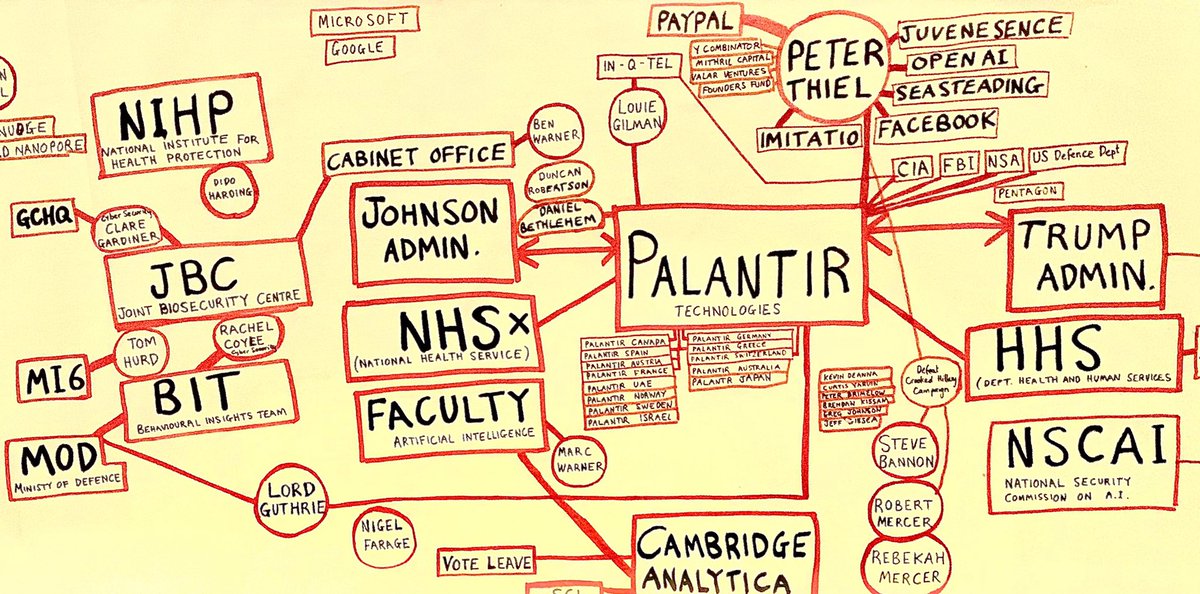 MICROSOFT
GOOGLE
NUDGE
D NANOPORE
NIHP
NATIONAL INSTITUTE FOR
HEALTH PROTECTION
DIDO
HARDING
GCHQ
Cyber Security
CLARE
GARDINER
JBC
JOINT BIOSECURITY CENTRE
CABINET OFFICE
BEN
WARNER
DUNCAN
ROBERTSON
DANIEL
BETHLEHEM
JOHNSON
ADMIN.
IN-Q-TEL
LOUIE
GILMAN
PAYPAL
Y COMBINATOR
MITHRIL CAPITAL
VALAR VENTURES
FOUNDERS FUND
PETER
THIEL
JUVENESENCE
OPEN AI
SEASTEADING
FACEBOOK
IMITATIO
CIA
FBI
NSA
US Defence Dept
PENTAGON
PALANTIR
TECHNOLOGIES
TRUMP
ADMIN.
NHSX
(NATIONAL HEALTH SERVICE)
HHS
(DEPT. HEALTH AND HUMAN SERVICES
MI6
TOM
HURD
RACHEL
COYLE
Cyber Security
BIT
BEHAVOURAL INSIGHTS TEAM
FACULTY
ARTIFICIAL INTELLIGENCE
MARC
WARNER
PALANTIR CANADA
PALANTIR SPAIN
PALANTIR AUSTRIA
PALANTIR FRANCE
PALANTIR UAE
PALANTIR NORWAY
PALANTIR SWEDEN
PALANTIR ISRAEL
PALANTIR GERMANY
PALANTIR GREECE
PALANTIR SWITZERLAND
PALANTIR AUSTRALIA
PALANTR JAPAN
KEVIN DEANNA
CURTIS YARVIN
PETER BRIMELOW
BRENDAN KISSAM
GREG JOHNSON
JEFF GIESEA
Defeat
Crooked Hillary
Campaign
STEVE
BANNON
ROBERT
MERCER
REBEKAH
MERCER
NSCAI
NATIONAL SECURITY
COMMISSION ON A.I.
MOD
MINISTY OF DEFENCE
LORD
GUTHRIE
NIGEL
FARAGE
VOTE LEAVE
CAMBRIDGE
ANALYTICA